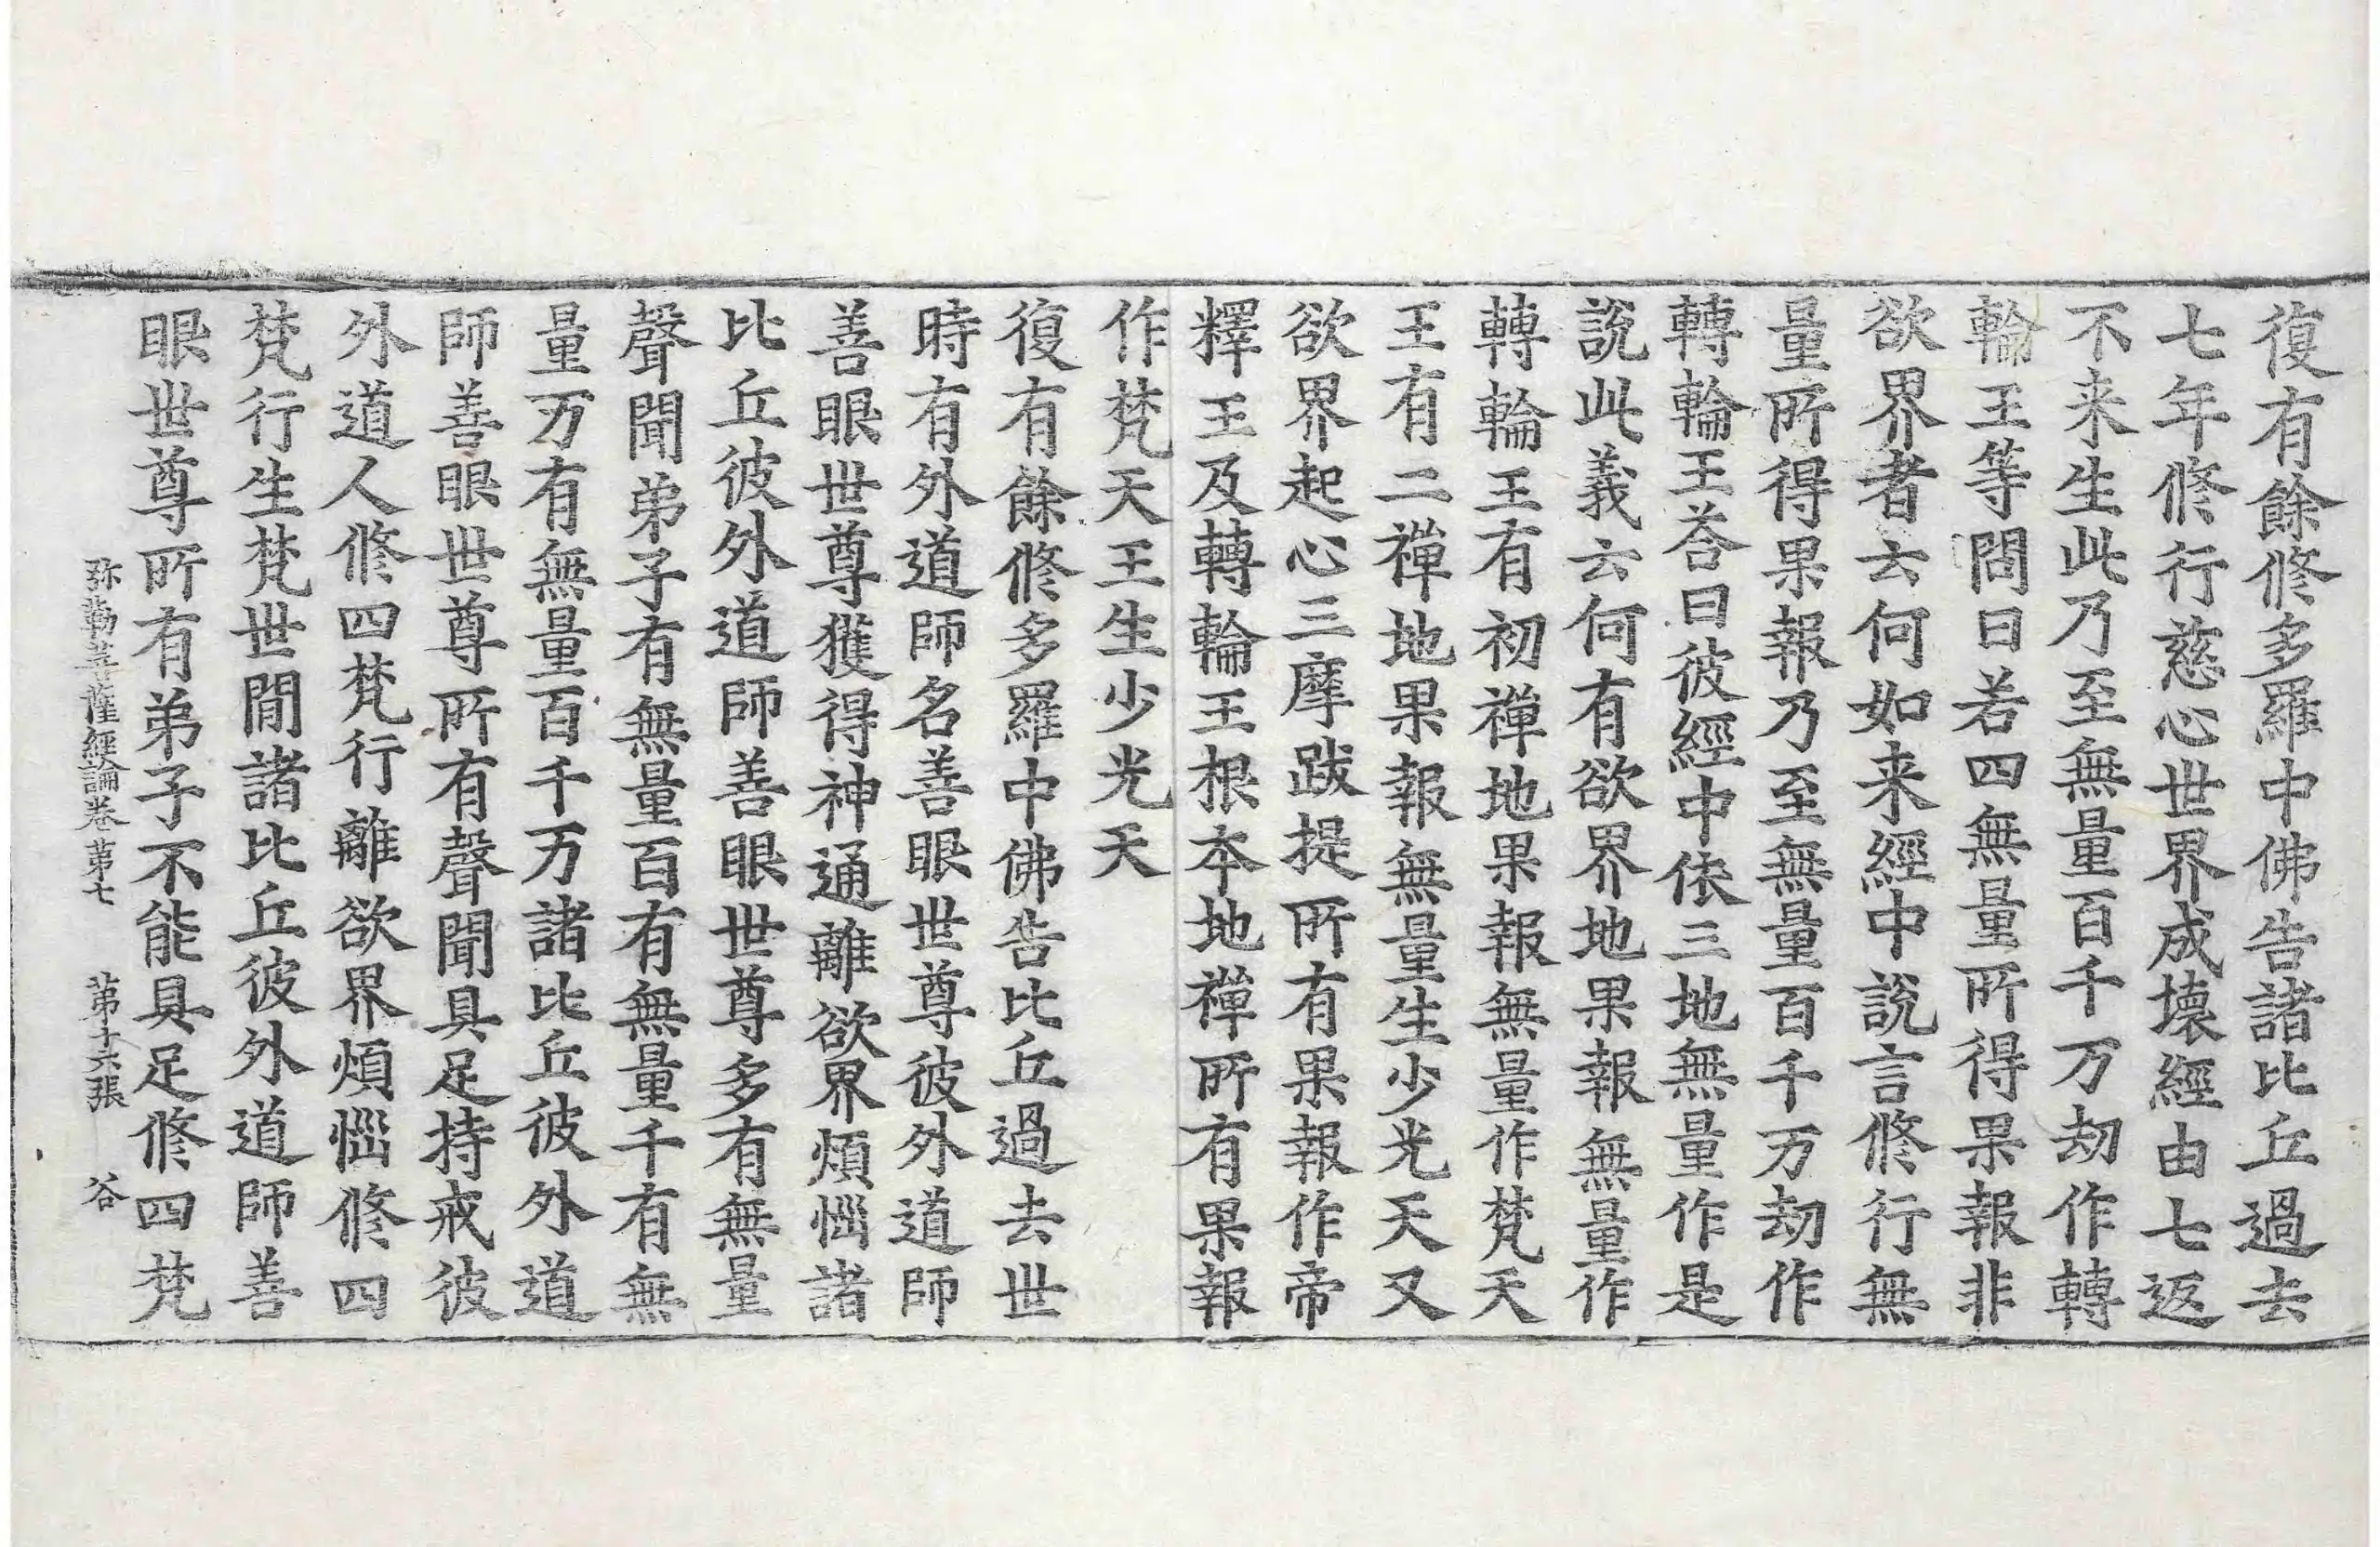 復有餘修多羅中佛告諸比丘過去
七年修行慈心世界成壞經由七返
不来生此乃至無量百千万劫作轉
輪王等問曰若四無量所得果報非
欲界者云何如来經中說言修行無
量所得果報乃至無量百千万劫作
轉輪王荅曰彼經中依三地無量作是
說此義云何有欲界地果報無量作
轉輪王有初禪地果報無量作梵天
王有二禪地果報無量生少光天又
欲界起心三摩跋提所有果報作帝
釋王及轉輪王根本地禪所有果報
作梵天王生少光天
復有餘修多羅中佛告比丘過去世
時有外道師名善眼世尊彼外道師
善眼世尊獲得神通離欲界煩惱諸
比丘彼外道師善眼世尊多有無量
聲聞弟子有無量百有無量千有無
量万有無量百千万諸比丘彼外道
師善眼世尊所有聲聞具足持戒彼
外道人修四梵行離欲界煩惱修四
梵行生梵世間諸比丘彼外道師善
眼世尊所有弟子不能具足修四梵
弥勒菩薩經論卷第七　第十六張　谷